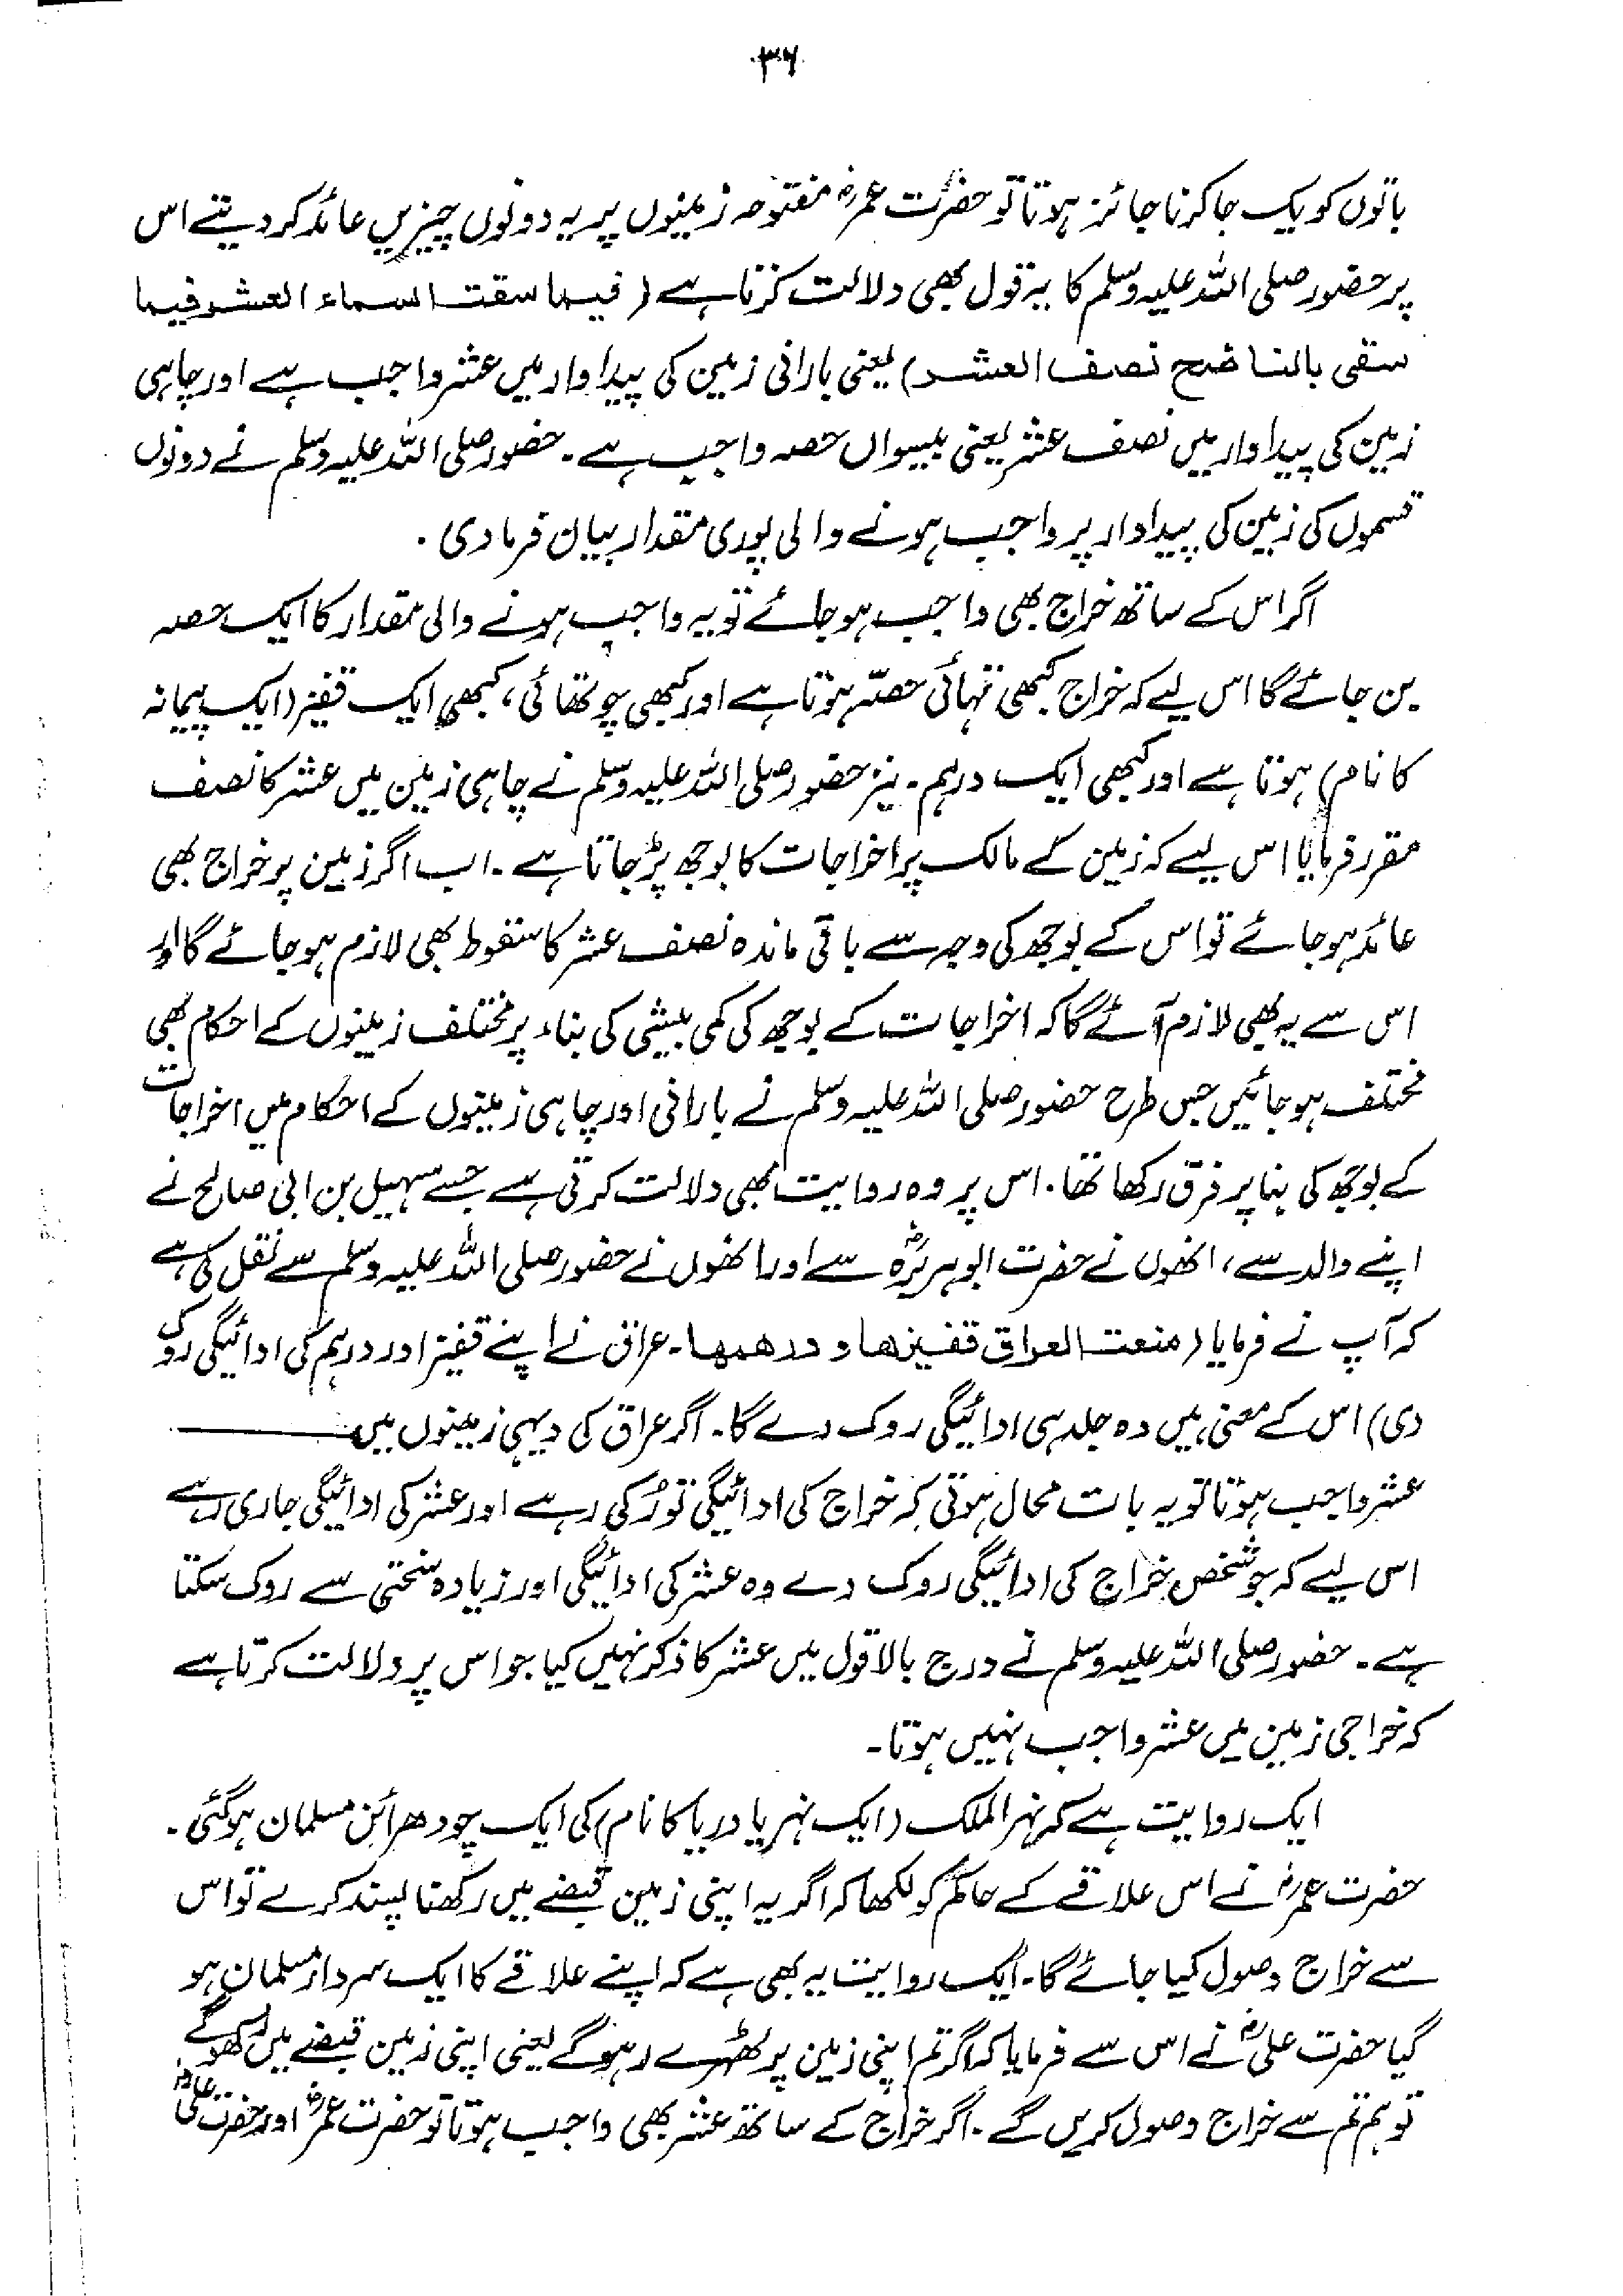 ۳۶
باتوں کو یک جا کرنا جائز ہوتا تو حضرت عمرؓ مفتوحہ زمینوں پر یہ دونوں چیزیں عائد کر دیتے اس
پر حضور صلی اللہ علیہ وسلم کا یہ قول بھی دلالت کرتا ہے (فیما سقت السماء العشر فیما
سقی بالناضح نصف العشر) یعنی بارانی زمین کی پیداوار میں عشر واجب ہے اور چاہی
زمین کی پیداوار میں نصف عشر یعنی بیسواں حصہ واجب ہے۔ حضور صلی اللہ علیہ وسلم نے دونوں
قسموں کی زمین کی پیداوار پر واجب ہونے والی پوری مقدار بیان فرما دی ۔
اگر اس کے ساتھ خراج بھی واجب ہو جائے تو یہ واجب ہونے والی مقدار کا ایک حصہ
بن جائے گا اس لیے کہ خراج کبھی تہائی حصّہ ہوتا ہے اور کبھی چوتھائی، کبھی ایک قفیز (ایک پیمانہ
کا نام) ہوتا ہے اور کبھی ایک درہم۔ نیز حضور صلی اللہ علیہ وسلم نے چاہی زمین میں عشر کا نصف
مقرر فرمایا اس لیے کہ زمین کے مالک پر اخراجات کا بوجھ پڑ جاتا ہے ۔ اب اگر زمین پر خراج بھی
عائد ہو جائے تو اس کے بوجھ کی وجہ سے باقی ماندہ نصف عشر کا سقوط بھی لازم ہو جائے گا اور
اس سے یہ بھی لازم آئے گا کہ اخراجات کے بوجھ کی کمی بیشی کی بناء پر مختلف زمینوں کے احکام بھی
مختلف ہو جائیں جس طرح حضور صلی اللہ علیہ وسلم نے بارانی اور چاہی زمینوں کے احکام میں اخراجات
کے بوجھ کی بنا پر فرق رکھا تھا۔ اس پر وہ روایت بھی دلالت کرتی ہے جسے سہیل بن ابی صالح نے
اپنے والد سے، انھوں نے حضرت ابوہریرہؓ سے اور انھوں نے حضور صلی اللہ علیہ وسلم سے نقل کی ہے
کہ آپ نے فرمایا (منعت العراق قفیزھا و درھمھا۔ عراق نے اپنے قفیز اور درہم کی ادائیگی روک
دی) اس کے معنی ہیں وہ جلد ہی ادائیگی روک دے گا۔ اگر عراق کی دیہی زمینوں میں
عشر واجب ہوتا تو یہ بات محال ہوتی کہ خراج کی ادائیگی تو رُکی رہے اور عشر کی ادائیگی جاری رہے
اس لیے کہ جو شخص خراج کی ادائیگی روک دے وہ عشر کی ادائیگی اور زیادہ سختی سے روک سکتا
ہے۔ حضور صلی اللہ علیہ وسلم نے درج بالا قول میں عشر کا ذکر نہیں کیا جو اس پر دلالت کرتا ہے
کہ خراجی زمین میں عشر واجب نہیں ہوتا۔
ایک روایت ہے کہ نہر الملک (ایک نہر یا دریا کا نام) کی ایک چودھرائن مسلمان ہوگئی۔
حضرت عمرؓ نے اس علاقے کے حاکم کو لکھا کہ اگر یہ اپنی زمین قبضے میں رکھنا پسند کرے تو اس
سے خراج وصول کیا جائے گا۔ ایک روایت یہ بھی ہے کہ اپنے علاقے کا ایک سردار مسلمان ہو
گیا حضرت علیؓ نے اس سے فرمایا کہ اگر تم اپنی زمین پر ٹھہرے رہو گے یعنی اپنی زمین قبضے میں رکھو گے
تو ہم تم سے خراج وصول کریں گے ۔ اگر خراج کے ساتھ عشر بھی واجب ہوتا تو حضرت عمرؓ اور حضرت علیؓ